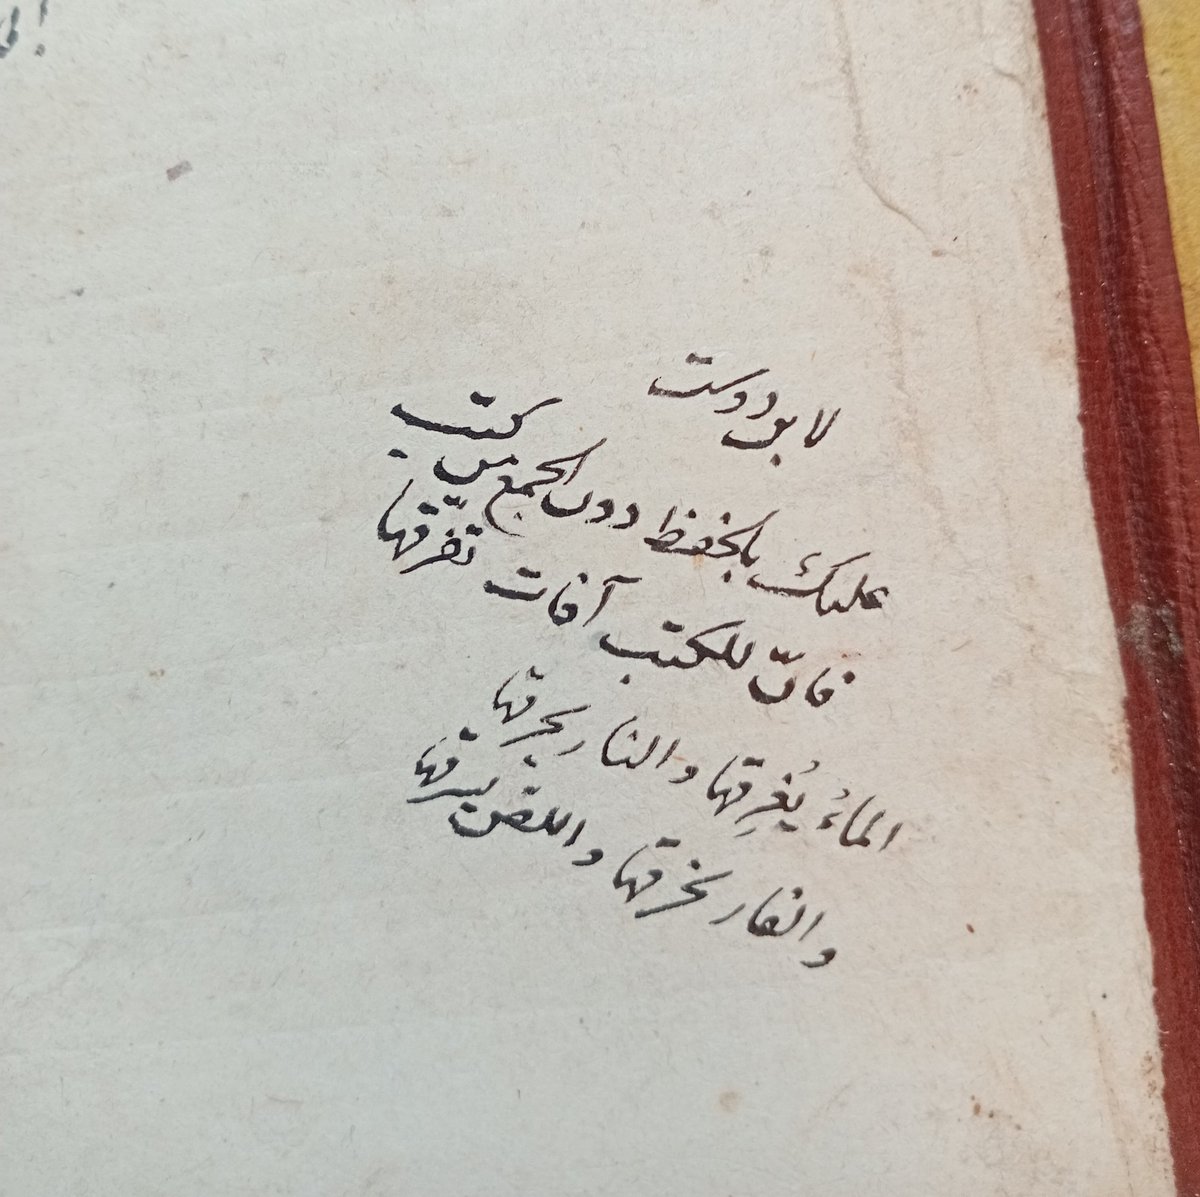 لابن دوست
عليك بالحفظ دون الجمع من كتب
فانّ للكتب آفات تفرّقها
الماءُ يُغرِقها والنار يحرقها
والفار يخرقها واللص يسرقها